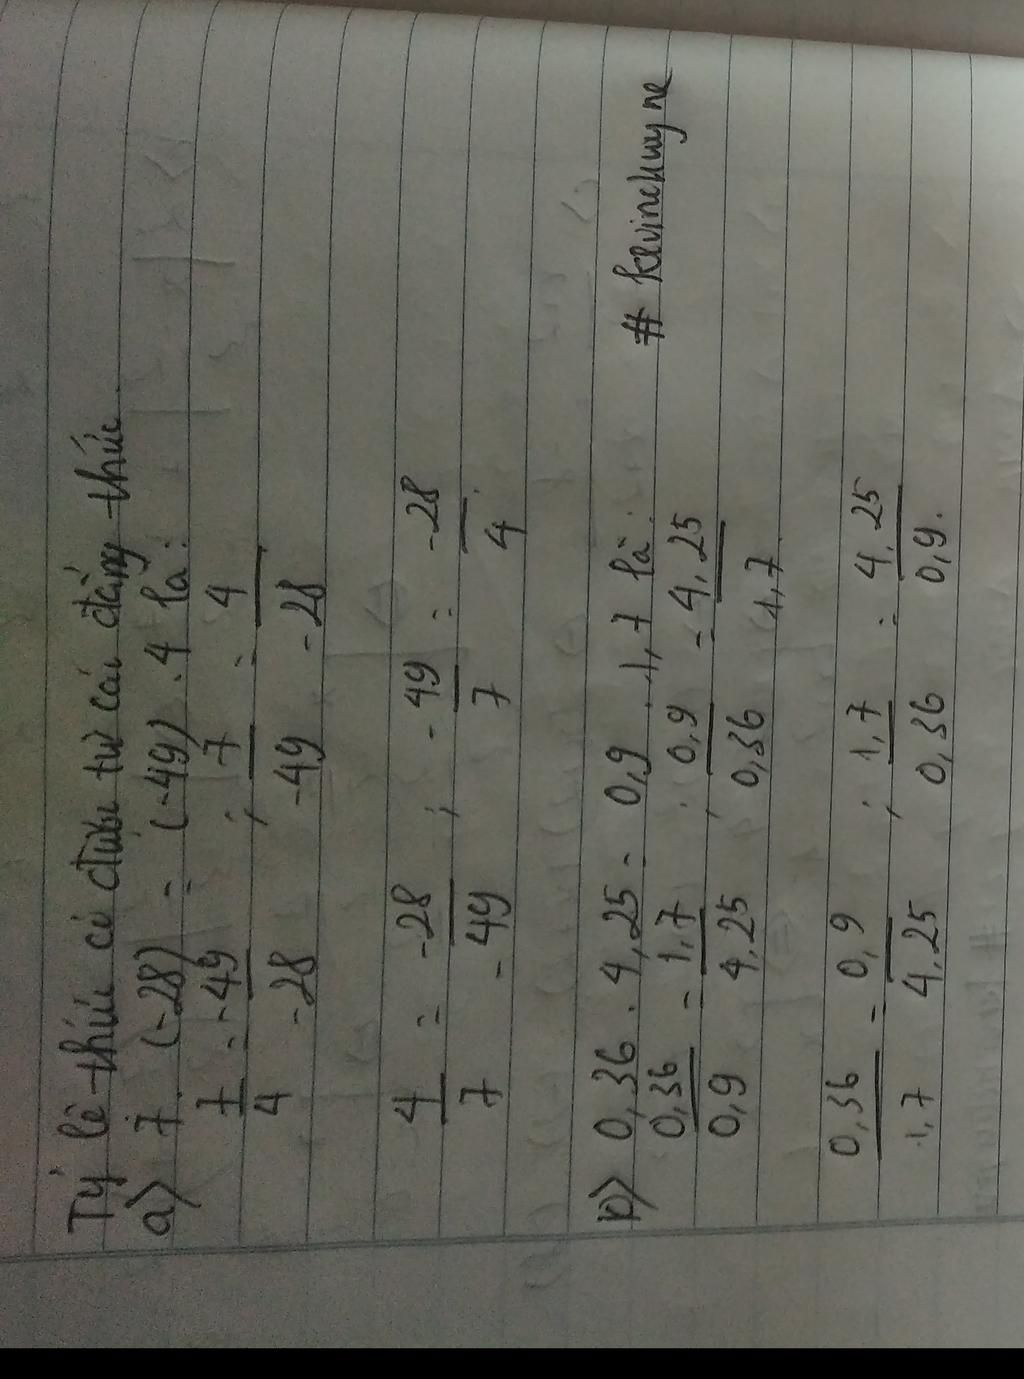 Tỷ lệ thức có được từ các đẳng thức
a) 7 . (-28) = (-49) . 4 là:
7/4 = -49/-28 ; 7/-49 = 4/-28
4/7 = -28/-49 ; -49/7 = -28/4
b) 0,36 . 4,25 = 0,9 . 1,7 là:
0,36/0,9 = 1,7/4,25 ; 0,9/0,36 = 4,25/1,7
# kevinehuy ne
0,36/1,7 = 0,9/4,25 ; 1,7/0,36 = 4,25/0,9.